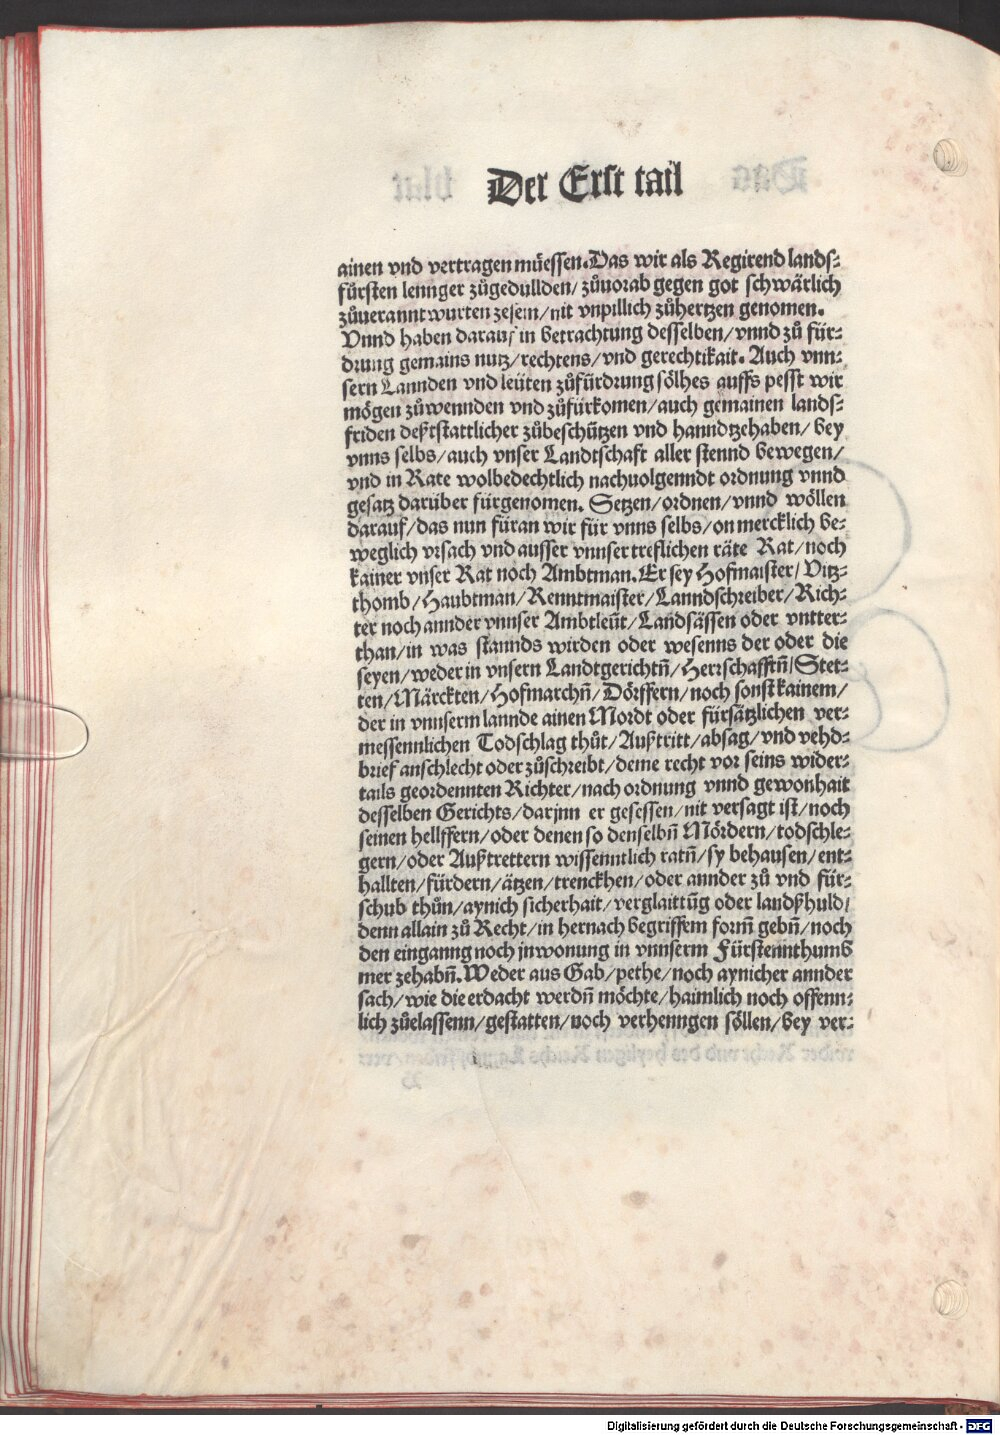 Der Erst tail
ainen vnd vertragen müessen. Das wir als Regirend lands-
fürsten lennger zůgedullden / zůuorab gegen got schwärlich
zůuerannt wurten zesein / nit vnpillich zůhertzen genomen.
Vnnd haben darauf in betrachtung desselben / vnnd zů für-
drung gemains nutz / rechtens / vnd gerechtikait. Auch vnn-
sern Lannden vnd leüten zůfürdrung sölhes auffs pesst wir
mögen zůwennden vnd zůfürkomen / auch gemainen lands-
friden deßtstattlicher zůbeschützen vnd hanndtzehaben / bey
vnns selbs / auch vnser Landtschaft aller stennd bewegen /
vnd in Rate wolbedechtlich nachuolgenndt ordnung vnnd
gesatz darüber fürgenomen. Setzen / ordnen / vnnd wöllen
darauf / das nun füran wir für vnns selbs / on mercklich be-
weglich vrsach vnd ausser vnnser treflichen räte Rat / noch
kainer vnser Rat noch Ambtman. Er sey Hofmaister / Vitz-
thomb / Haubtman / Renntmaister / Lanndschreiber / Rich-
ter noch annder vnnser Ambtleüt / Landsässen oder vntter-
than / in was stannds wirden oder wesenns der oder die
seyen / weder in vnsern Landtgerichtn̄ / Herrschafftn̄ / Stet-
ten / Märckten / Hofmarchn̄ / Dörffern / noch sonst kainem /
der in vnnserm lannde ainen Mordt oder fürsätzlichen ver-
messennlichen Todschlag thůt / Außtritt / absag / vnd vehd-
brief anschlecht oder zůschreibt / deme recht vor seins wider-
tails geordennten Richter / nach ordnung vnnd gewonhait
desselben Gerichts / darjnn er gesessen / nit versagt ist / noch
seinen hellffern / oder denen so denselbn̄ Mördern / todschle-
gern / oder Außtrettern wissenntlich ratn̄ / sy behausen / ent-
hallten / fürdern / ätzen / trenckhen / oder annder zů vnd für-
schub thůn / aynich sicherhait / verglaittūg oder landßhuld /
denn allain zů Recht / in hernach begriffem forn̄ gebn̄ / noch
den einganng noch jnwonung in vnnserm Fürstennthumb
mer zehabn̄. Weder aus Gab / pethe / noch aynicher annder
sach / wie die erdacht werdn̄ möchte / haimlich noch offenn-
lich zůelassenn / gestatten / noch verhenngen söllen / bey ver-
Digitalisierung gefördert durch die Deutsche Forschungsgemeinschaft - DFG